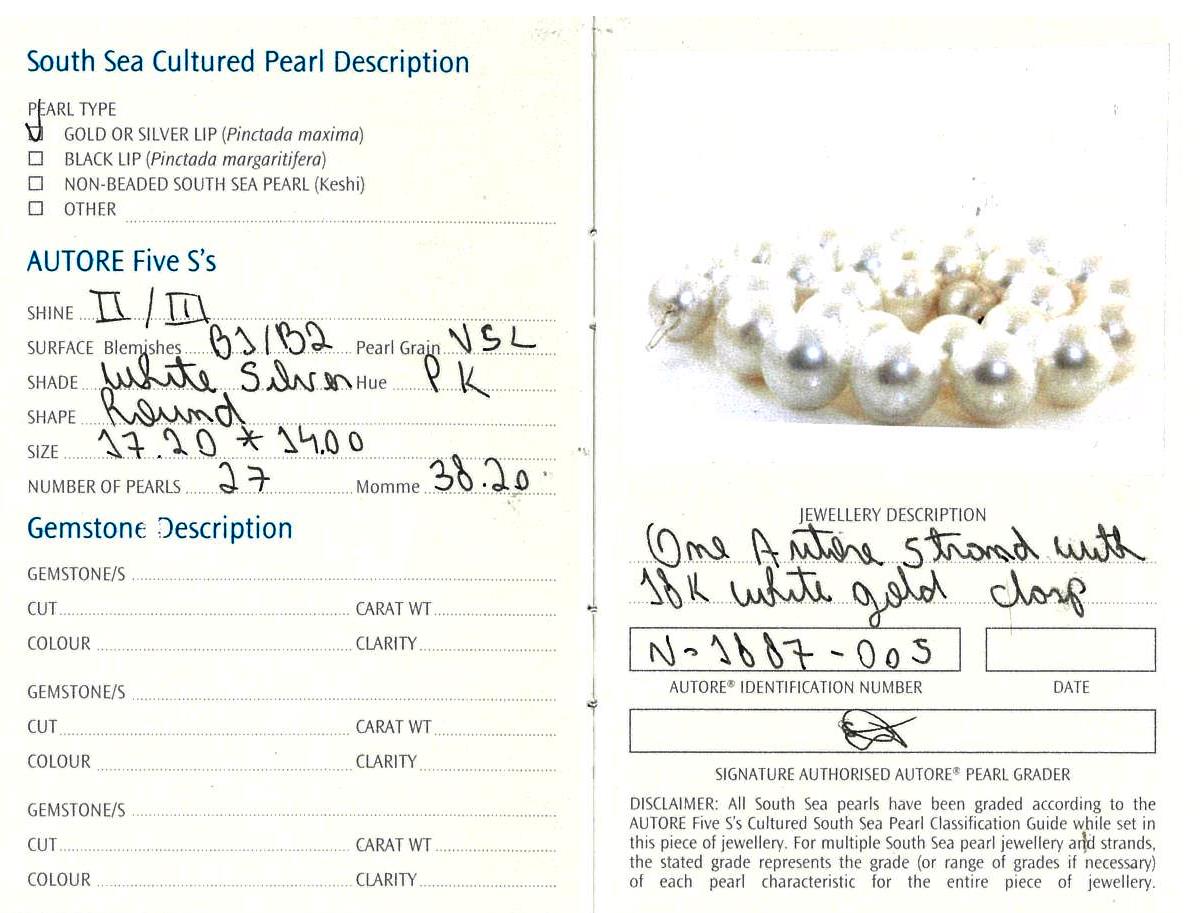 South Sea Cultured Pearl Description
PEARL TYPE
GOLD OR SILVER LIP (Pinctada maxima)
BLACK LIP (Pinctada margaritifera)
NON-BEADED SOUTH SEA PEARL (Keshi)
OTHER
AUTORE Five S's
SHINE II / III
SURFACE Blemishes B1/B2 Pearl Grain VSL
SHADE White Silver Hue PK
SHAPE Round
SIZE 17.20 * 14.00
NUMBER OF PEARLS 27 Momme 38.20
Gemstone Description
GEMSTONE/S
CUT CARAT WT
COLOUR CLARITY
GEMSTONE/S
CUT CARAT WT
COLOUR CLARITY
GEMSTONE/S
CUT CARAT WT
COLOUR CLARITY
JEWELLERY DESCRIPTION
One Autore strand with
18K white gold clasp
N-1887-005
AUTORE® IDENTIFICATION NUMBER DATE
SIGNATURE AUTHORISED AUTORE® PEARL GRADER
DISCLAIMER: All South Sea pearls have been graded according to the
AUTORE Five S's Cultured South Sea Pearl Classification Guide while set in
this piece of jewellery. For multiple South Sea pearl jewellery and strands,
the stated grade represents the grade (or range of grades if necessary)
of each pearl characteristic for the entire piece of jewellery.